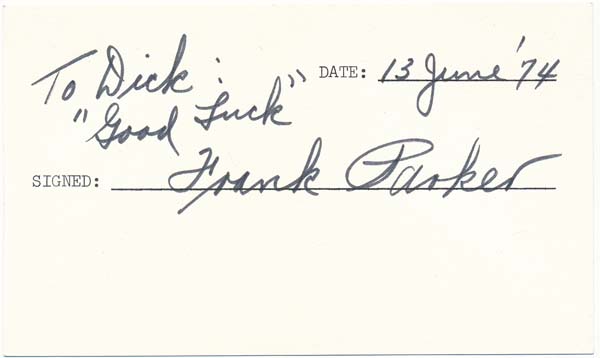 To Dick:
"Good Luck"
DATE: 13 June '74
SIGNED: Frank Parker